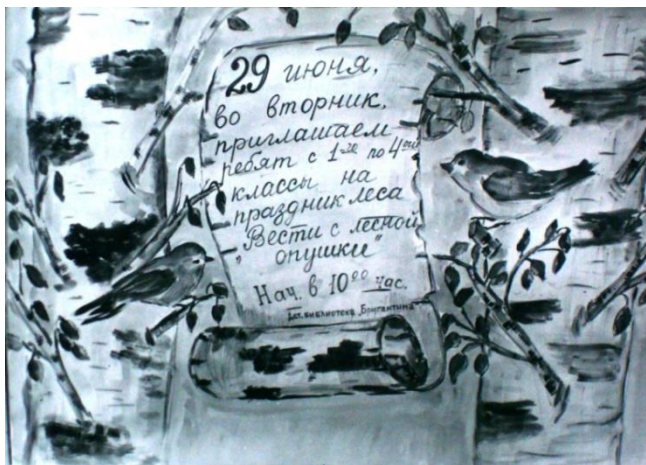 29 июня,
во вторник,
приглашаем
ребят с 1-ые по 4ый
классы на
праздник леса
"Вести с лесной
опушки"
Нач. в 10⁰⁰ час.
дет. библиотека „Бригантина"